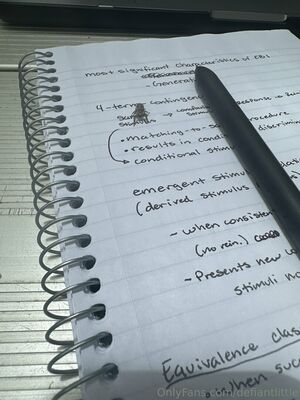 most significant characteristics of EBI
- Generati
4-term contingen
Sample stimulus → response →
• matching-to-S procedure
• results in cond discrimin
conditional stimul
emergent stimu
(derived stimulus
- when consisten
(no rein.)
- Presents new
stimuli no
Equivalence clas
- when succ
OnlyFans.com/defiantlittle